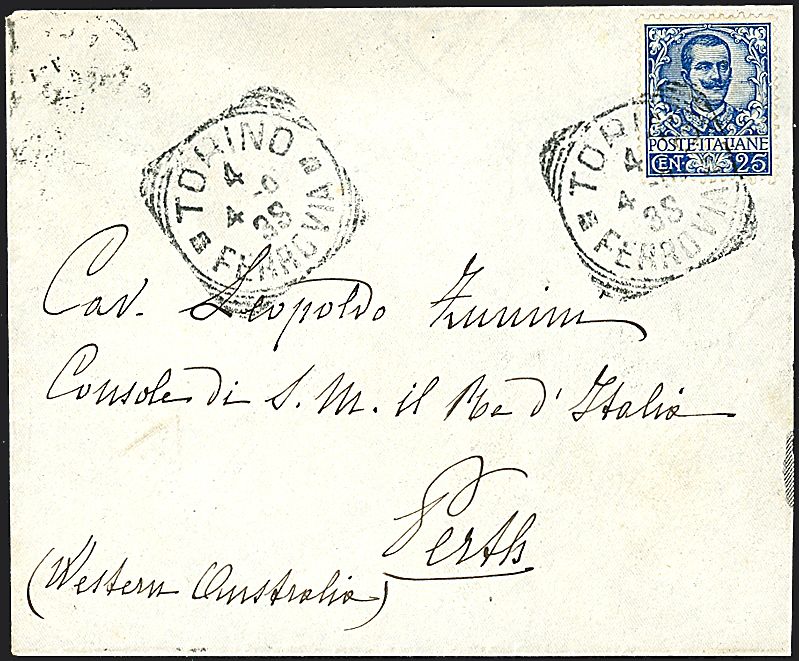 POSTE·ITALIANE
CEN. 25
TORINO
4
4
FERROVIA
TORINO
4
4
FERROVIA
Cav. Leopoldo Zunini
Console di S. M. il Re d'Italia
Perth
(Western Australia)